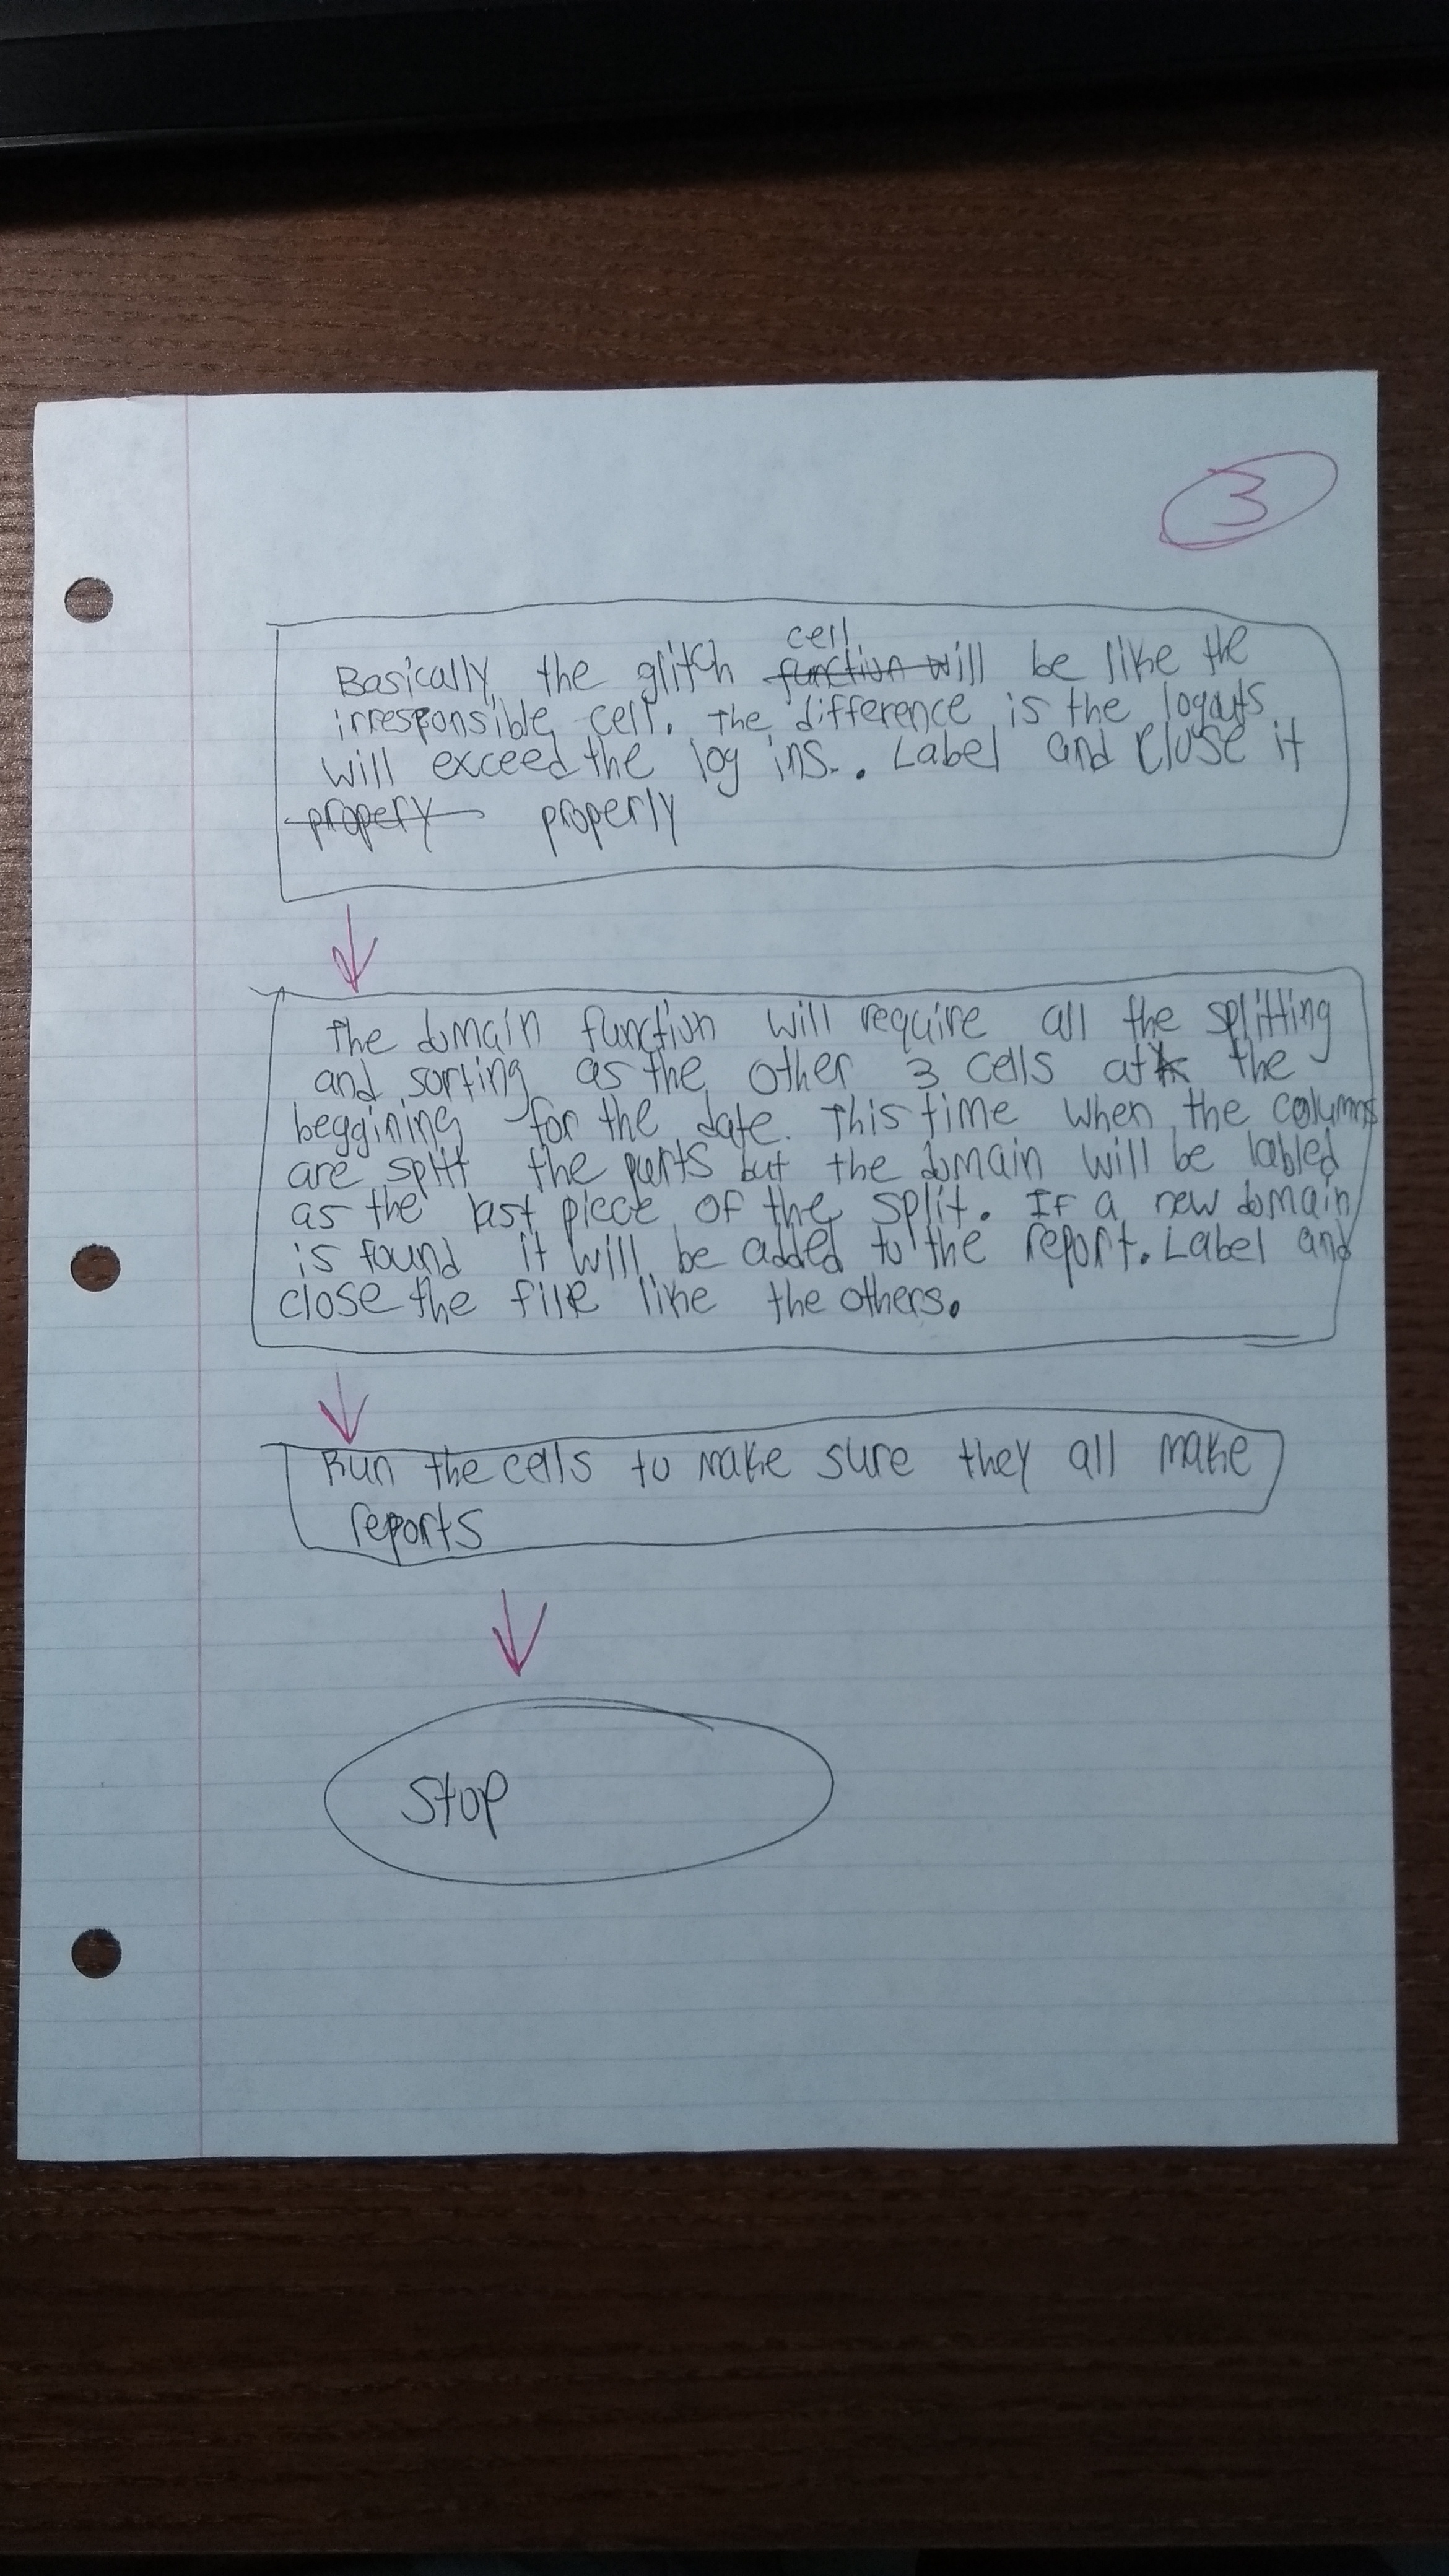 3
cell
Basically the glitch function will be like the
irresponsible cell. The difference is the logouts
will exceed the log ins.. Label and close it
propery properly
The domain function will require all the splitting
and sorting as the other 3 cells at the
beggining for the date. This time when the columns
are split the parts but the domain will be labled
as the last piece of the split. If a new domain
is found it will be added to the report. Label and
close the file like the others.
Run the cells to make sure they all make
reports
Stop